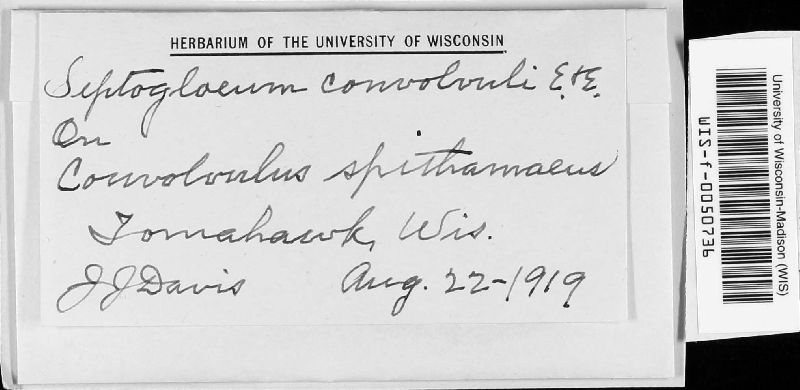 HERBARIUM OF THE UNIVERSITY OF WISCONSIN
Septogloeum convolvuli E.&E.
On
Convolvulus spithamaeus
Tomahawk, Wis.
J J Davis Aug. 22-1919
University of Wisconsin-Madison (WIS)
WIS-f-0050736